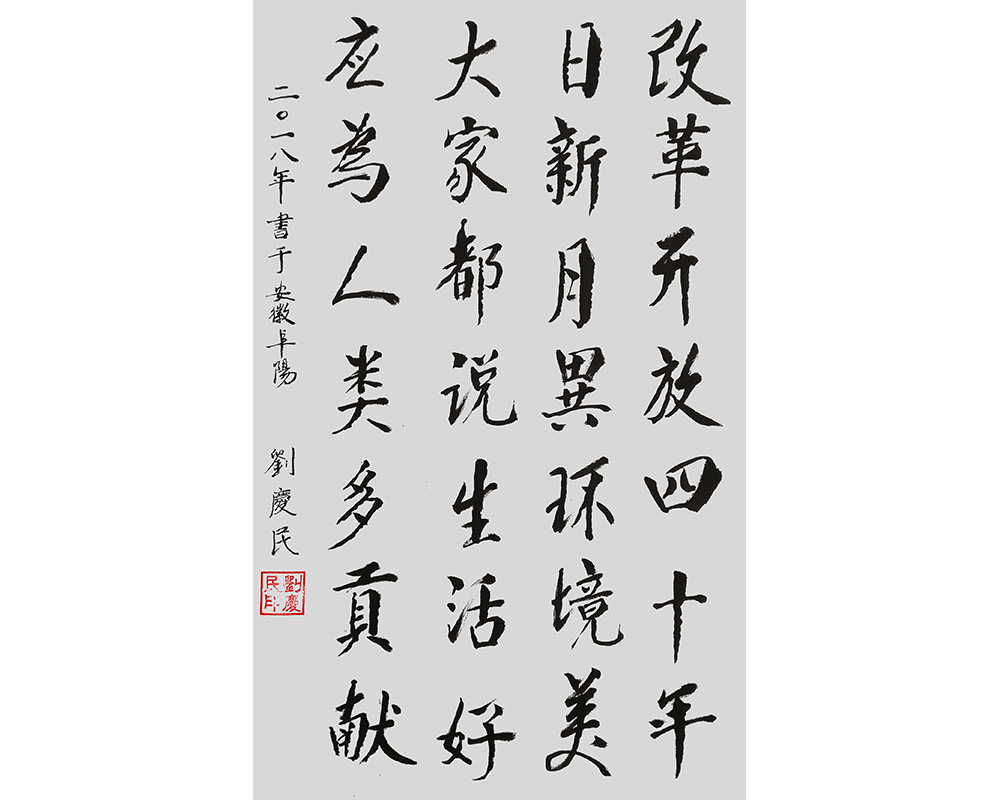 改革开放四十年
日新月異环境美
大家都说生活好
应為人类多貢献
二〇一八年書于安徽阜陽
劉慶民
劉慶民印